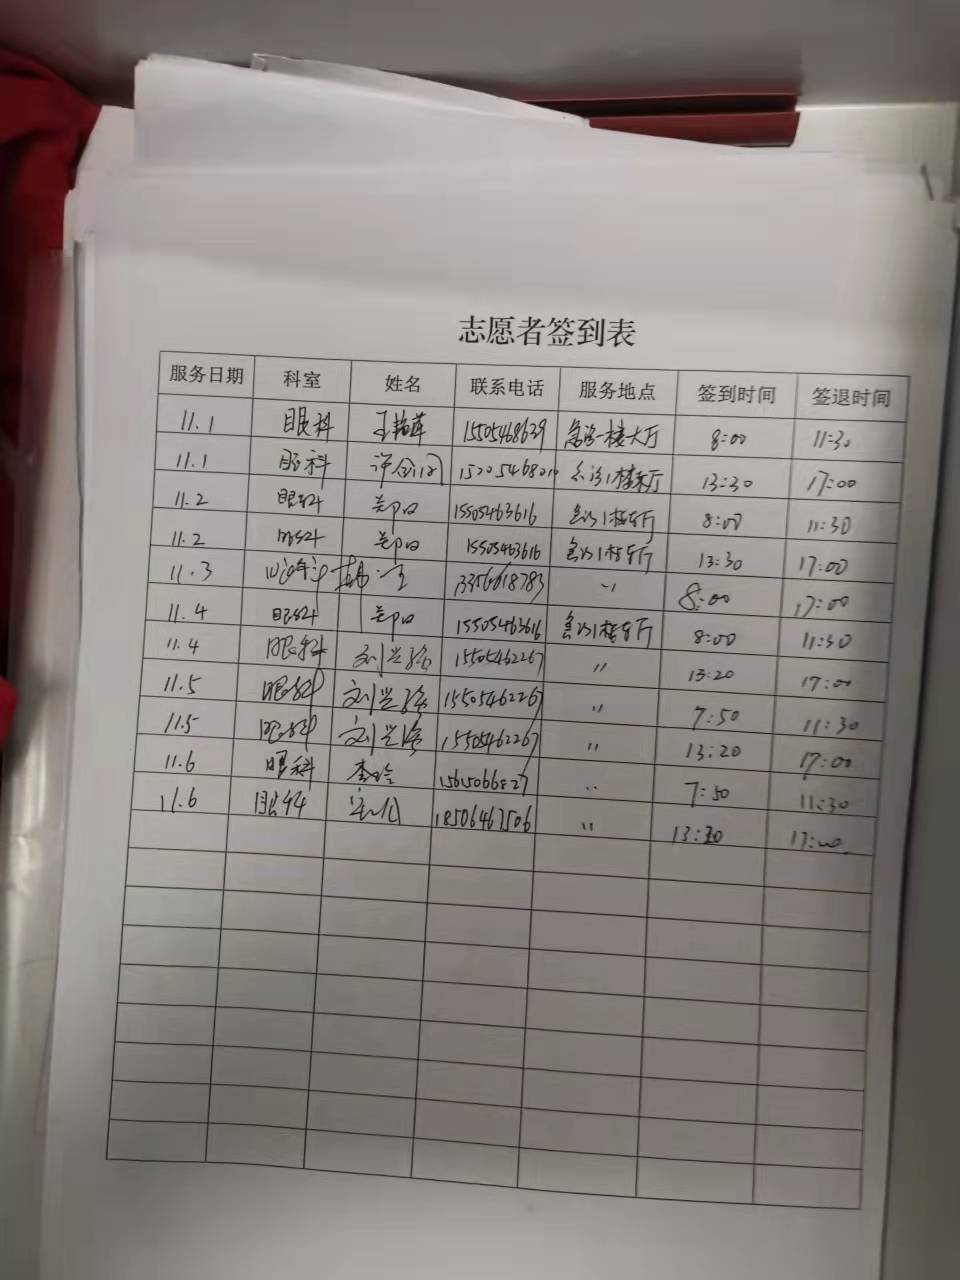 志愿者签到表
服务日期 科室 姓名 联系电话 服务地点 签到时间 签退时间
11.1 眼科 15505468639 急诊一楼大厅 8:00 11:30
11.1 眼科 急诊1楼大厅 13:30 17:00
11.2 眼科 15505463616 急诊1楼大厅 8:00 11:30
11.2 眼科 15505463616 急诊1楼大厅 13:30 17:00
11.3 8:00 17:00
11.4 眼科 15505463616 急诊1楼大厅 8:00 11:30
11.4 眼科 15505462267 〃 13:20 17:00
11.5 眼科 15505462267 〃 7:50 11:30
11.5 眼科 15505462267 〃 13:20 17:00
11.6 眼科 李玲 15615066827 〃 7:50 11:30
11.6 眼科 18506467506 〃 17:00